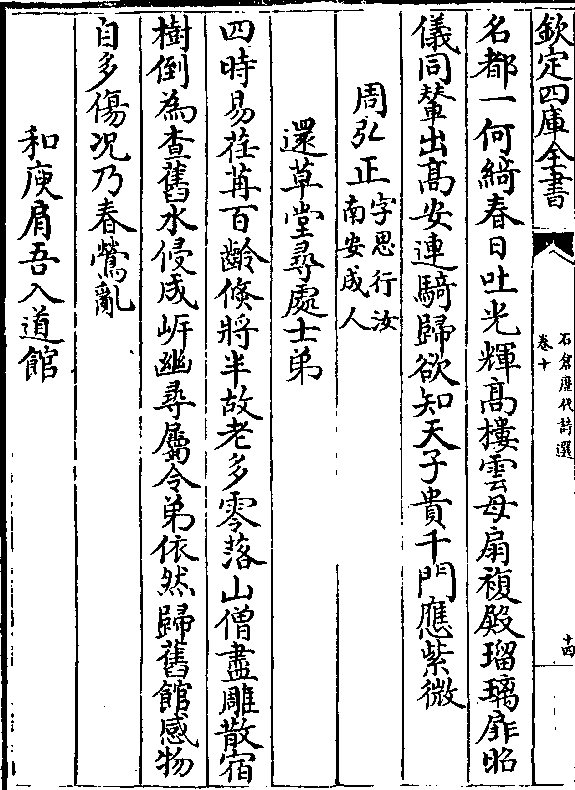 欽定四庫全書
石倉歷代詩選
卷十
十四
名都一何綺春日吐光輝高樓雲母扇複殿瑠璃扉昭
儀同輦出高安連騎歸欲知天子貴千門應紫微
周弘正字思行汝
南安成人
還草堂尋處士弟
四時易荏苒百齡倐將半故老多零落山僧盡雕散宿
樹倒為查舊水侵成岓幽尋屬令弟依然歸舊館感物
自多傷况乃春鶯亂
和庾肩吾入道館